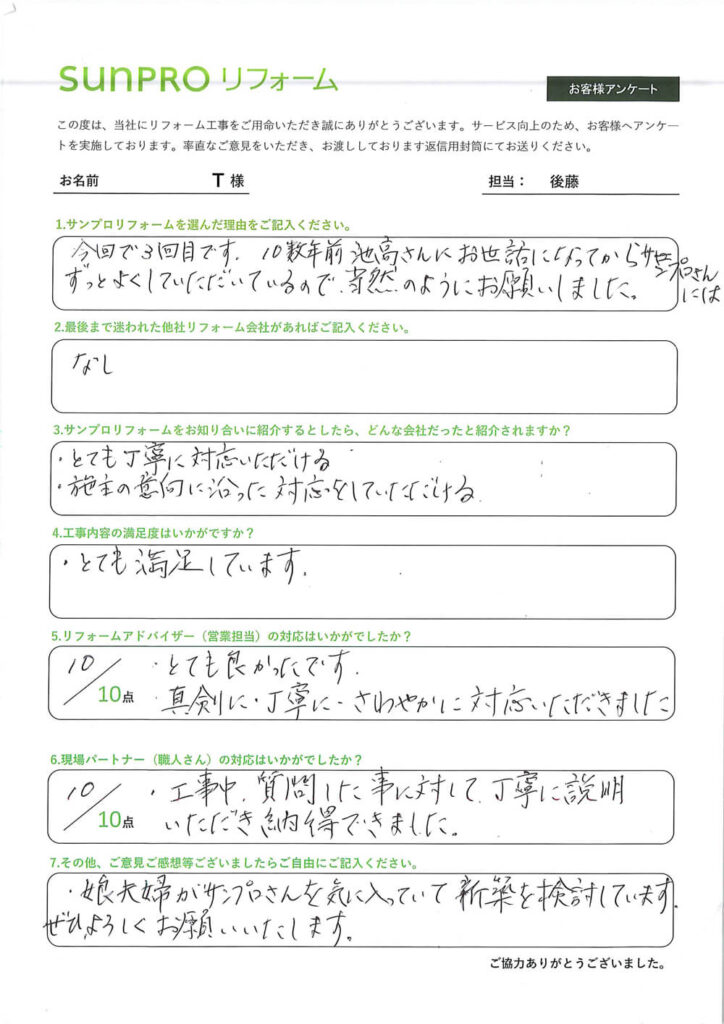 sunPRO リフォーム
お客様アンケート
この度は、当社にリフォーム工事をご用命いただき誠にありがとうございます。サービス向上のため、お客様へアンケー
トを実施しております。率直なご意見をいただき、お渡ししております返信用封筒にてお送りください。
お名前 T 様 担当： 後藤
1.サンプロリフォームを選んだ理由をご記入ください。
今回で3回目です. 10数年前 池高さんにお世話になってからサンプロさんには
ずっとよくしていただいているので、当然のようにお願いしました。
2.最後まで迷われた他社リフォーム会社があればご記入ください。
なし
3.サンプロリフォームをお知り合いに紹介するとしたら、どんな会社だったと紹介されますか？
・とても丁寧に対応いただける
・施主の意向に沿った対応をしていただける.
4.工事内容の満足度はいかがですか？
・とても満足しています.
5.リフォームアドバイザー（営業担当）の対応はいかがでしたか？
10/10点 ・とても良かったです.
真剣に・丁寧に・さわやかに対応いただきました
6.現場パートナー（職人さん）の対応はいかがでしたか？
10/10点 ・工事中、質問した事に対して、丁寧に説明
いただき納得できました。
7.その他、ご意見ご感想等ございましたらご自由にご記入ください。
・娘夫婦がサンプロさんを気に入っていて新築を検討しています.
ぜひよろしくお願いいたします。
ご協力ありがとうございました。